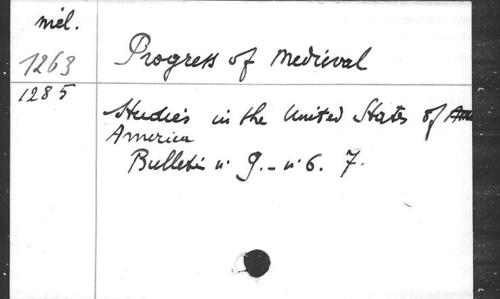 mél.
1263 Progress of Medieval
1285
Studies in the United States of
America
Bulletin n° 9. - n° 6. 7.